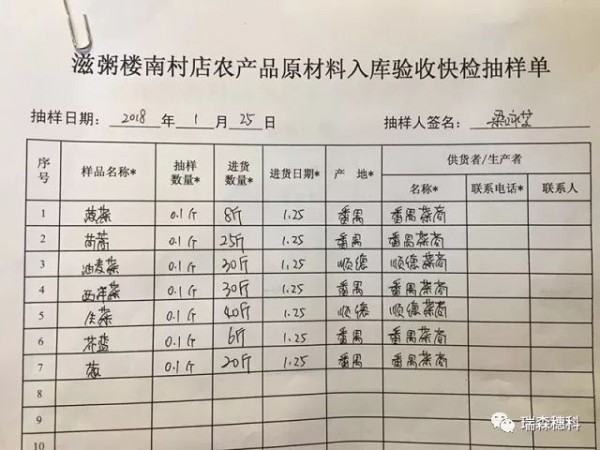 滋粥楼南村店农产品原材料入库验收快检抽样单
抽样日期: 2018 年 1 月 25 日 抽样人签名:
序号 样品名称* 抽样数量* 进货数量* 进货日期* 产 地* 供货者/生产者
名称* 联系电话* 联系人
1 菠菜 0.1斤 8斤 1.25 番禺 番禺菜商
2 茼蒿 0.1斤 25斤 1.25 番禺 番禺菜商
3 油麦菜 0.1斤 30斤 1.25 顺德 顺德菜商
4 西洋菜 0.1斤 30斤 1.25 番禺 番禺菜商
5 生菜 0.1斤 40斤 1.25 顺德 顺德菜商
6 芥蓝 0.1斤 6斤 1.25 番禺 番禺菜商
7 0.1斤 20斤 1.25 番禺 番禺菜商
8
9
10
瑞森穗科